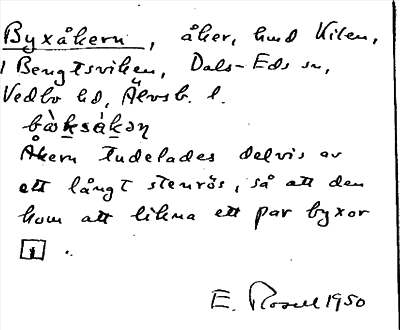 Byxåkern, åker, hmd Kilen,
i Bengtsviken, Dals-Eds sn,
Vedbo hd, Älvsb. l.
bàksákəṇ
Åkern tudelades delvis av
ett långt stenrös, så att den
kom att likna ett par byxor
.
E. Rosell 1950